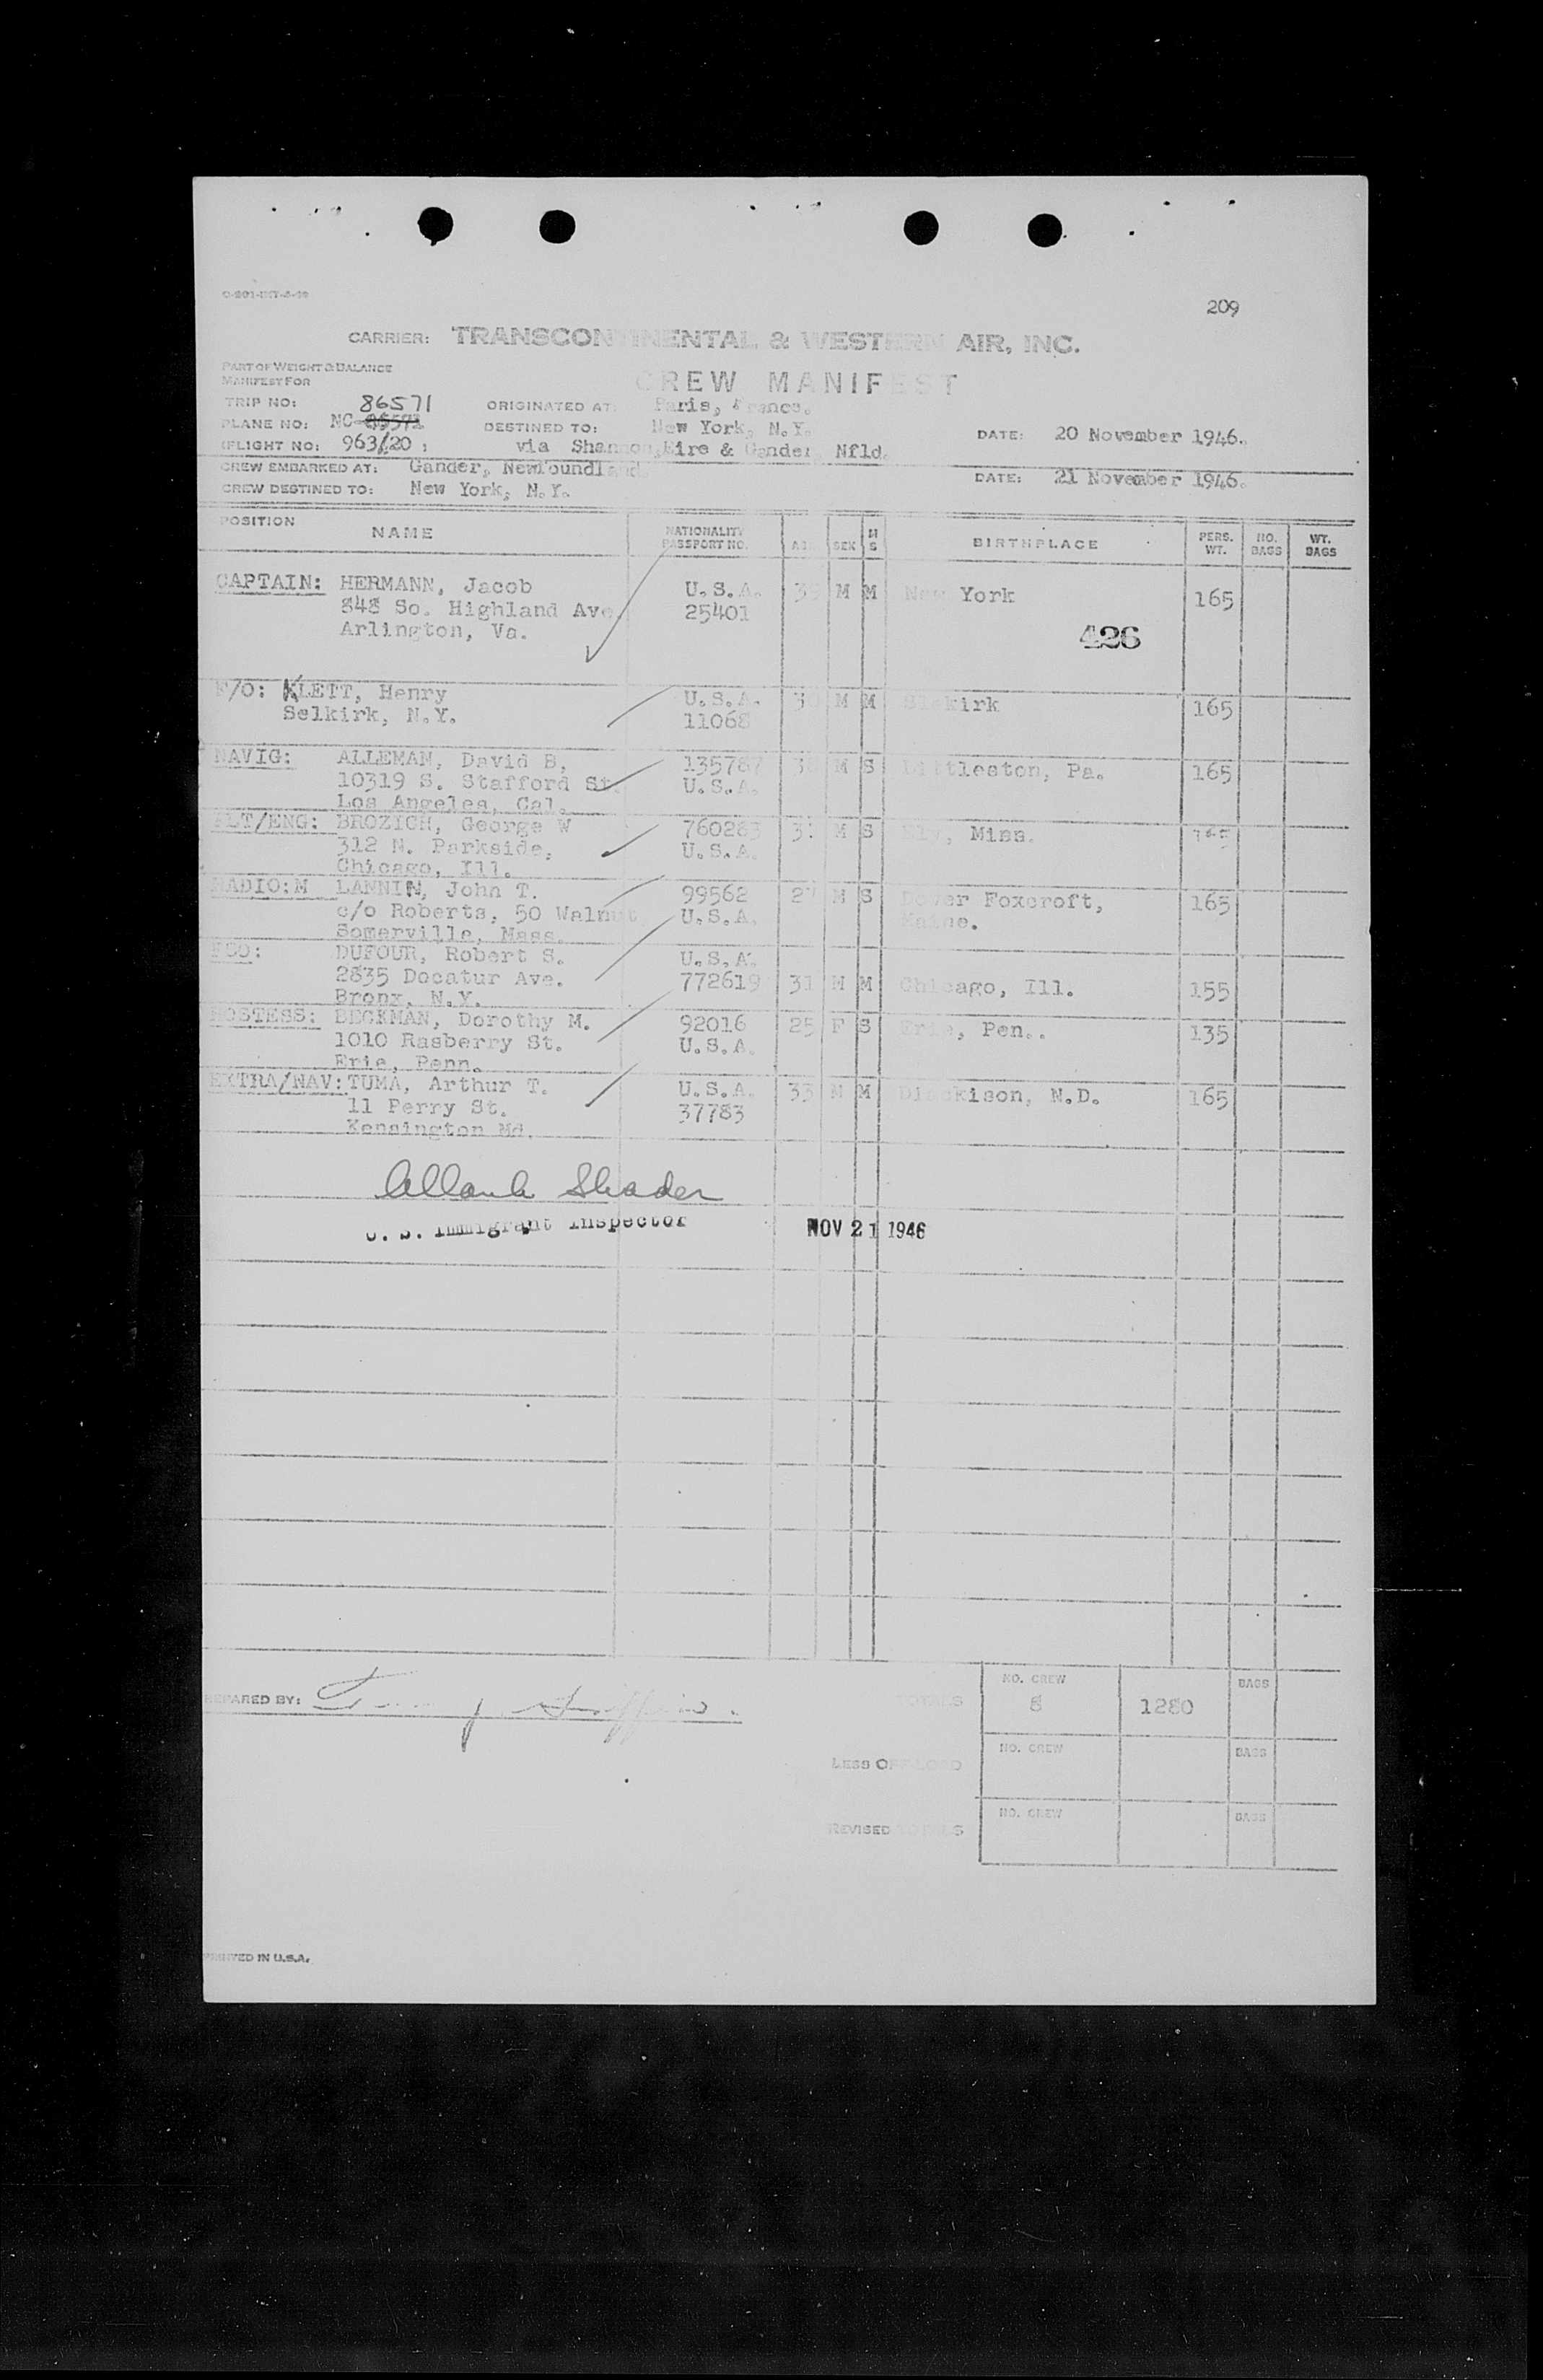 209
CARRIER: TRANSCONTINENTAL & WESTERN AIR, INC.
PART OF WEIGHT & BALANCE
MANIFEST FOR
CREW MANIFEST
TRIP NO: 86571 ORIGINATED AT: Paris, France.
PLANE NO: NC DESTINED TO: New York, N.Y.
FLIGHT NO: 963/20 via Shannon,Eire & Gander, Nfld. DATE: 20 November 1946.
CREW EMBARKED AT: Gander, Newfoundland
CREW DESTINED TO: New York, N.Y. DATE: 21 November 1946.
POSITION NAME NATIONALITY PASSPORT NO. AGE SEX M S BIRTHPLACE PERS. WT. NO. BAGS WT. BAGS
CAPTAIN: HERMANN, Jacob U.S.A. 39 M M New York 165
848 So. Highland Ave. 25401
Arlington, Va.
426
F/O: KLETT, Henry U.S.A. M M 165
Selkirk, N.Y. 11068
NAVIG: ALLEMAN, David B, 135787 M S Littleston, Pa. 165
10319 S. Stafford St. U.S.A.
Los Angeles, Cal.
FLT/ENG: BROZICH, George W 760283 31 M S Ely, Minn. 165
312 N. Parkside, U.S.A.
Chicago, Ill.
RADIO:M LANNIN, John T. 99562 27 M S Dover Foxcroft, 165
c/o Roberts, 50 Walnut U.S.A. Maine.
Somerville, Mass.
FCO: DUFOUR, Robert S. U.S.A.
2835 Docatur Ave. 772619 31 M M Chicago, Ill. 155
Bronx, N.Y.
HOSTESS: BECKMAN, Dorothy M. 92016 25 F S Erie, Pen.. 135
1010 Rasberry St. U.S.A.
Erie, Penn.
EXTRA/NAV: TUMA, Arthur T. U.S.A. 33 M M Dinckison, N.D. 165
11 Perry St. 37783
Kensington Md.
Shader
U. S. Immigrant Inspector NOV 21 1946
PREPARED BY: TOTALS NO. CREW 8 1280 BAGS
LESS OFF-LOAD NO. CREW BAGS
REVISED TOTALS NO. CREW BAGS
PRINTED IN U.S.A.